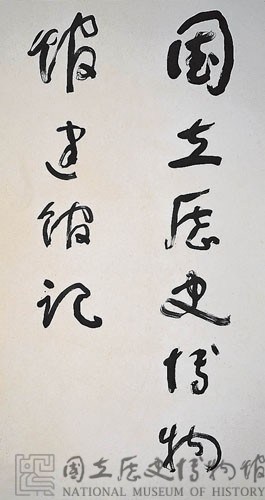 國立歷史博物
館建館記
國立歷史博物館
NATIONAL MUSEUM OF HISTORY